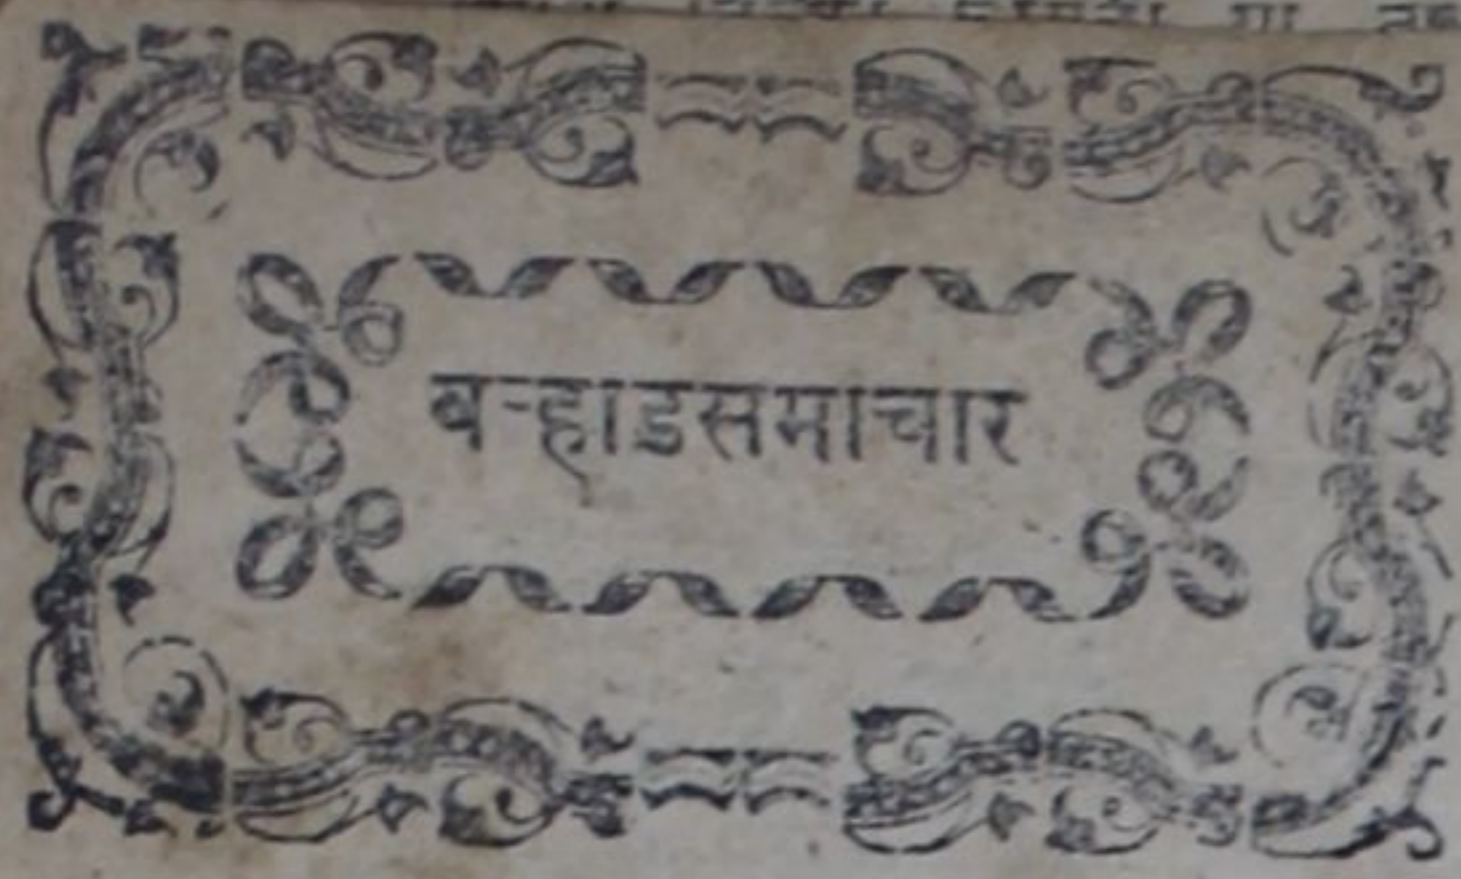 बऱ्हाडसमाचार